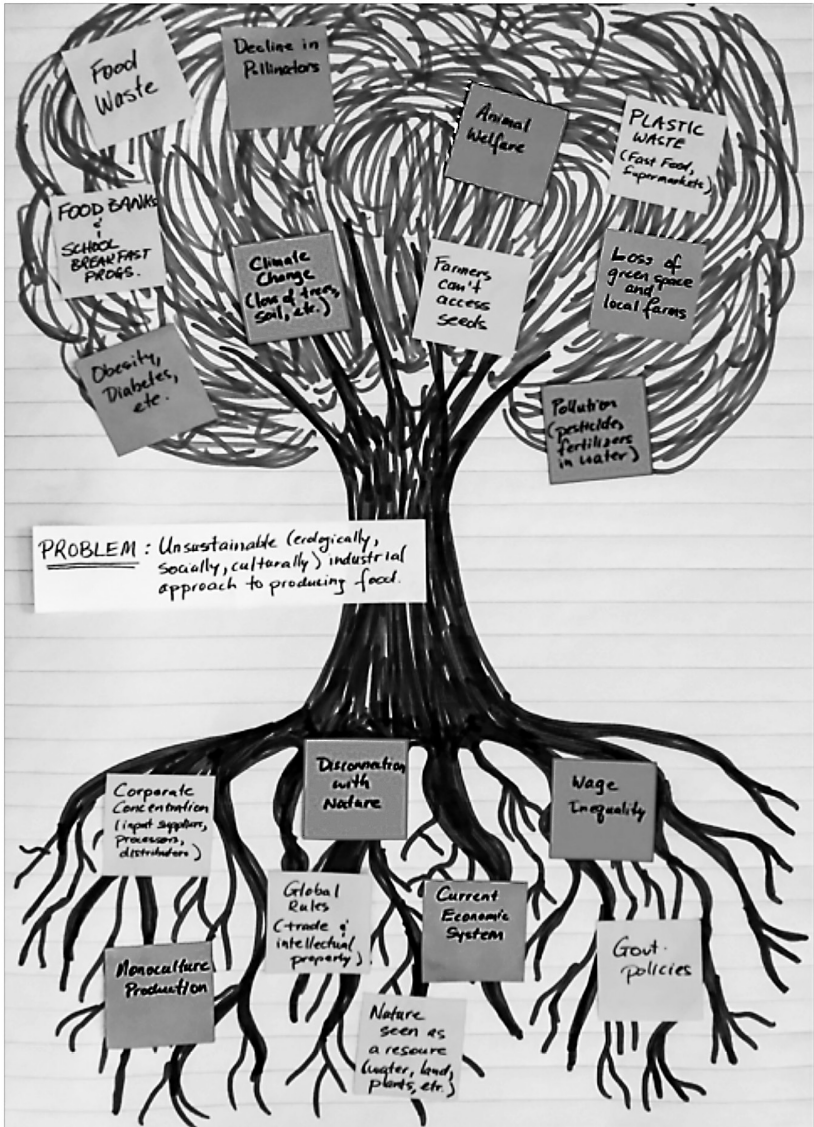 Food
Waste
Decline in
Pollinators
Animal
Welfare
PLASTIC
WASTE
(Fast Food,
Supermarkets)
FOOD BANKS
&
SCHOOL
BREAKFAST
PROGS.
Climate
Change
(loss of trees,
soil, etc.)
Farmers
can't
access
seeds
Loss of
green space
and
local farms
Obesity,
Diabetes,
etc.
Pollution
(pesticides,
fertilizers
in water)
PROBLEM: Unsustainable (ecologically,
socially, culturally) industrial
approach to producing food.
Corporate
Concentration
(input suppliers,
processors,
distributors)
Disconnection
with
Nature
Wage
Inequality
Global
Rules
(trade &
intellectual
property)
Current
Economic
System
Gov't.
policies
Monoculture
Production
Nature
seen as
a resource
(water, land,
plants, etc.)